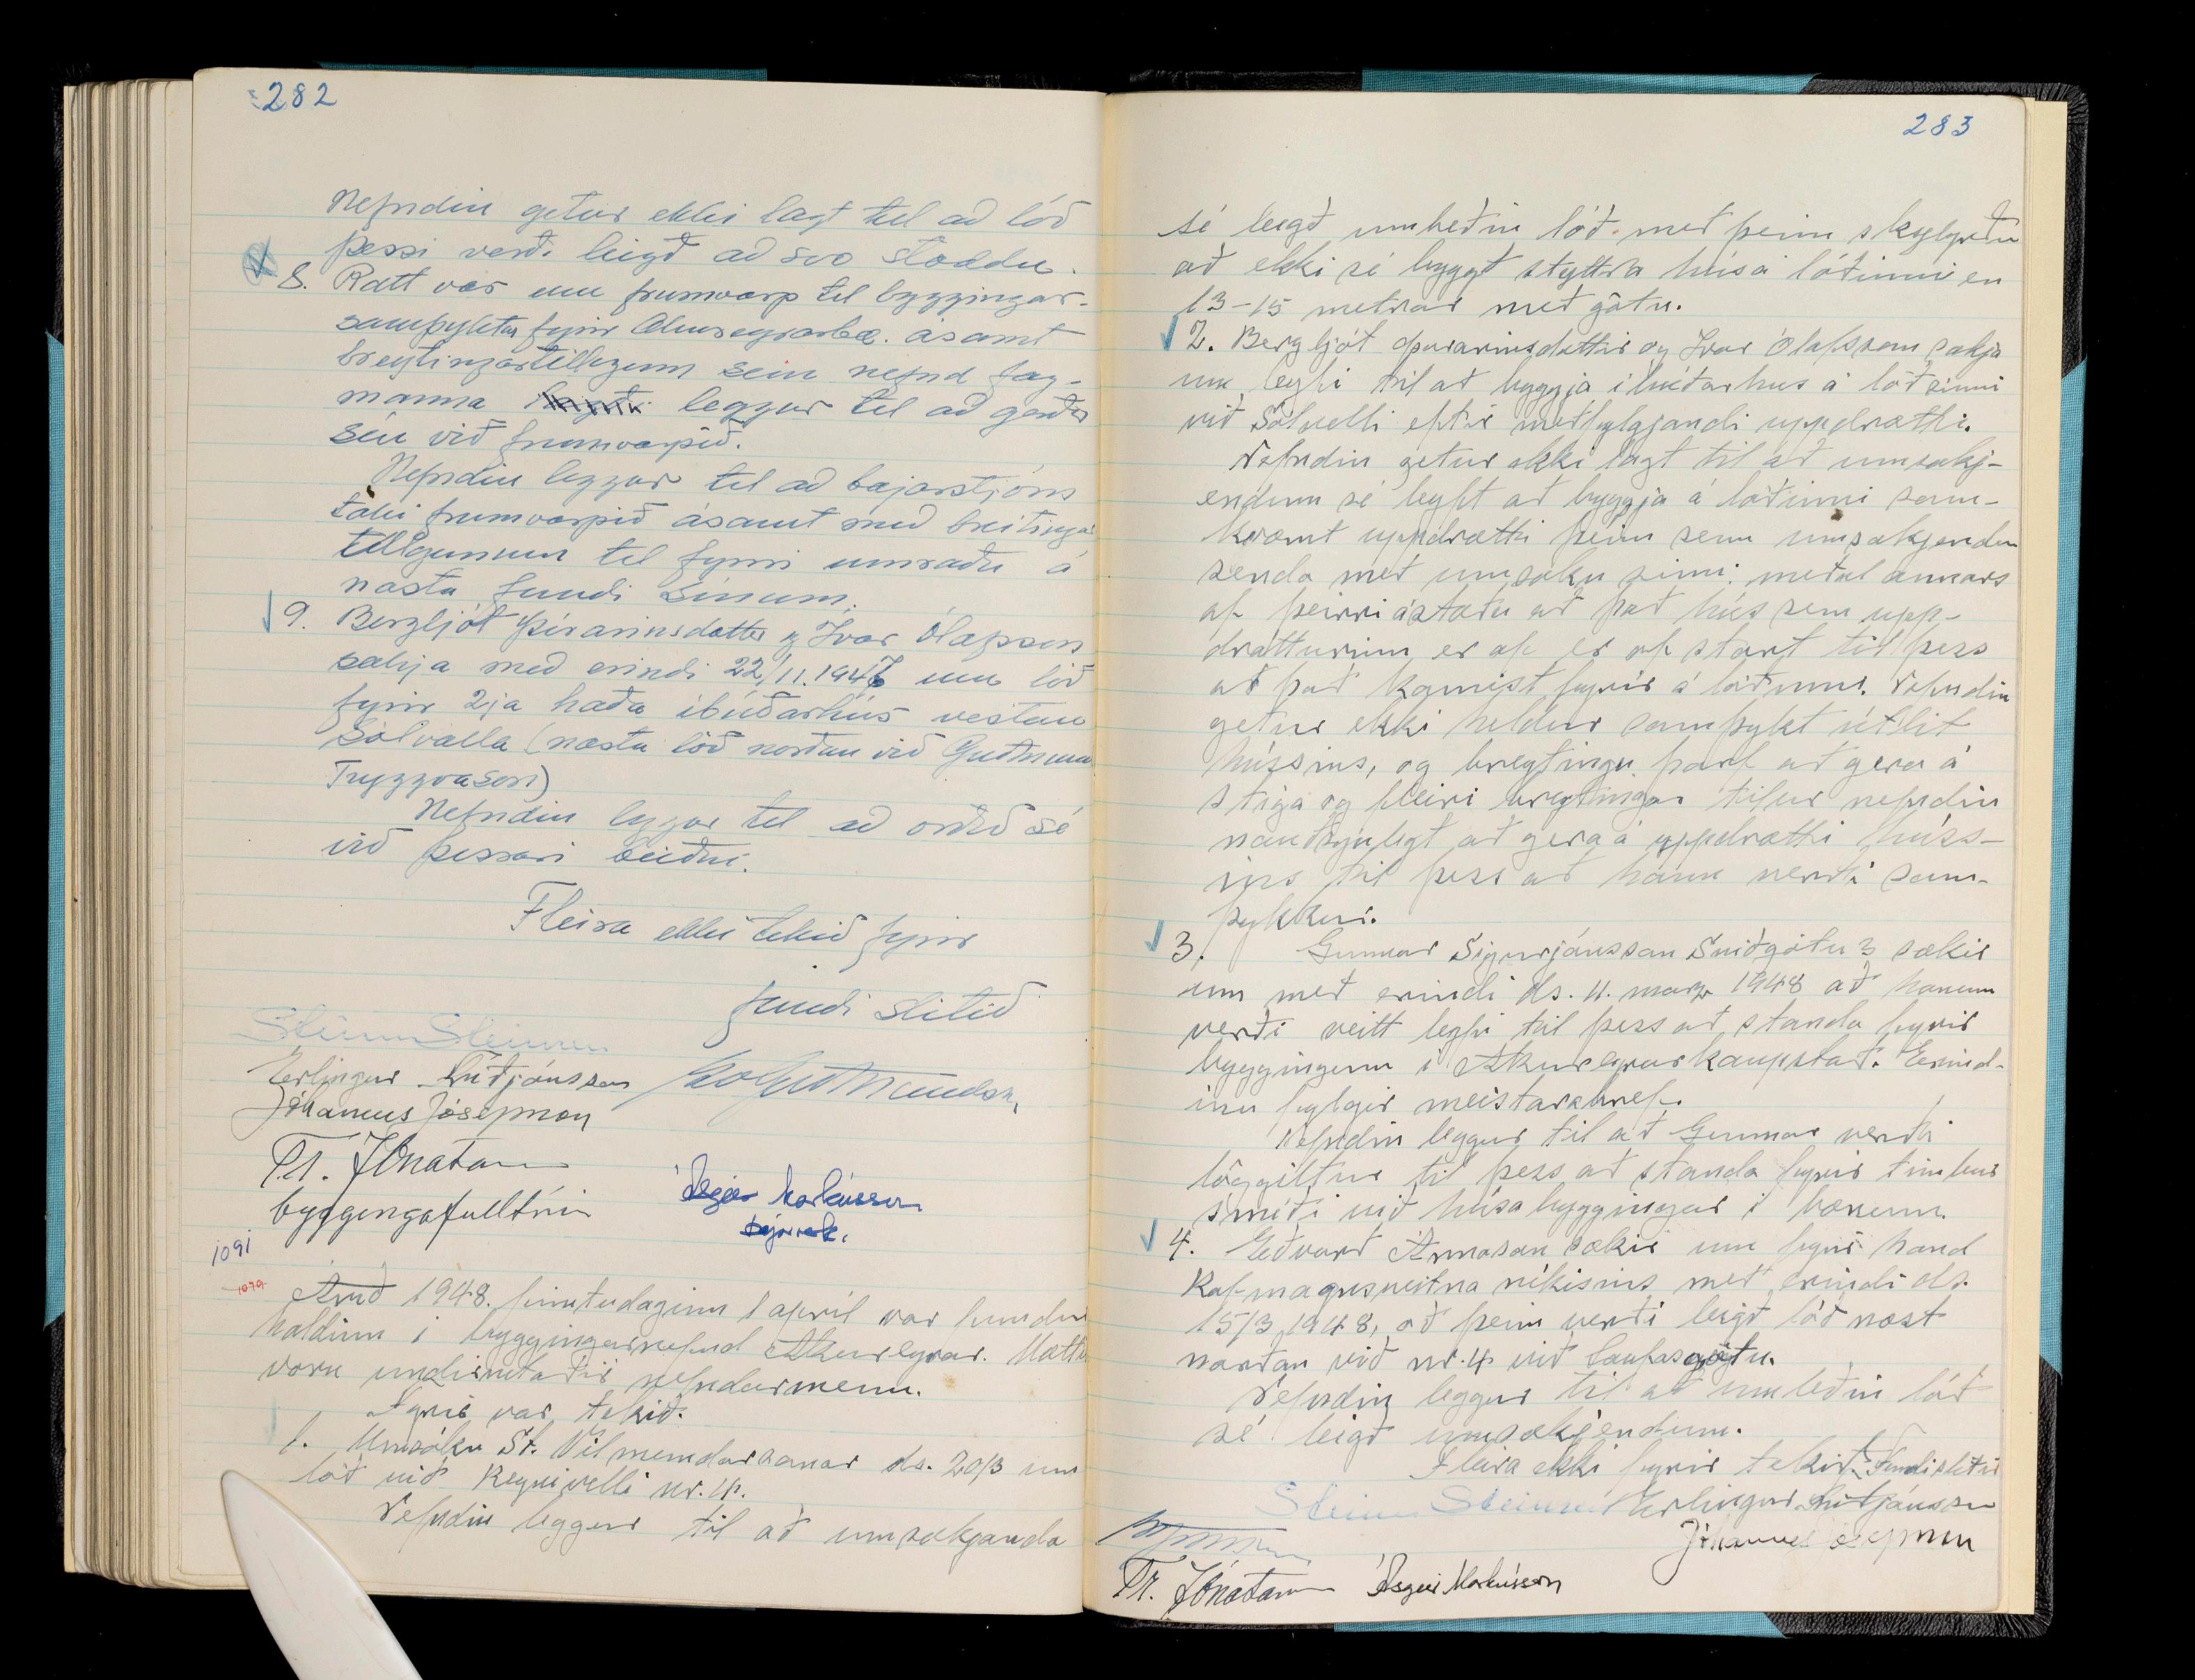 282
Nefndin getur ekki lagt til að lóð
þessi verði leigð að svo stöddu.
8. Rætt var um frumvarp til byggingar-
samþyktar fyrir Akureyrarbæ. ásamt
breytingartillögum sem nefnd fag-
manna leggur til að gerðar
séu við frumvarpið.
Nefndin leggur til að bæjarstjórn
taki frumvarpið ásamt með breitinga
tillögunum til fyrri umræðu á
næsta fundi sínum.
9. Bergljót Þórarinsdóttir og Ívar Ólafsson
sækja með erindi 22/11.1947 um lóð
fyrir 2ja hæða íbúðarhús vestan
Sólvalla (næsta lóð norðan við Guðmund
Tryggvason)
Nefndin leggur til að orðið sé
við þessari beiðni.
Fleira ekki tekið fyrir
fundi slitið
Steinn Steinsen
Erlingur Friðjónsson
Jóhannes Jósepsson
Tr. Jónatansson
byggingafulltrúi
Ásgeir Markússon
bæjarverk.
1091
1079
Árið 1948. fimtudaginn 1 apríl var fundur
haldinn í byggingarnefnd Akureyrar. Mættir
voru undirritaðir nefndarmenn.
Fyrir var tekið.
1. Umsókn St. Vilmundarsonar ds. 20/3 um
lóð við Reynivelli nr. 4.
Nefndin leggur til að umsækjanda
283
sé leigð umbeðin lóð. með þeim skylyrðum
að ekki sé byggt styttra hús á lóðinni en
13-15 metrar með götu.
2. Bergljót Þórarinsdóttir og Ívar Ólafsson sækja
um leyfi til að byggja íbúðarhús á lóð sinni
við Sólvelli eftir meðfylgjandi uppdrætti.
Nefndin getur ekki lagt til að umsækj-
endum sé leyft að byggja á lóðinni sam-
kvæmt uppdrætti þeim sem umsækjendur
senda með umsókn sinni. meðal annars
af þeirri ástæðu að það hús sem upp-
drátturinn er af er of stórt til þess
að það komist fyrir á lóðinni. Nefndin
getur ekki heldur samþykt útlit
hússins, og breytingu þarf að gera á
stiga og fleiri breytingar telur nefndin
nauðsynlegt að gera á uppdrætti húss-
ins til þess að hann verði sam-
þykktur.
3. Gunnar Sigurjónsson Sniðgötu 3 sækir
um með erindi ds. 11. marz 1948 að honum
verði veitt leyfi til þess að standa fyrir
byggingum í Akureyrarkaupstað. Erind-
inu fylgir meistarabref.
Nefndin leggur til að Gunnar verði
löggiltur til þess að standa fyrir timbur
smíði við húsabyggingar í bænum.
4. Eðvarð Árnason sækir um fyrir hönd
Rafmagnsveitna ríkisins með erindi ds.
15/3 1948, að þeim verði leigð lóð næst
norðan við nr. 4 við Laufásgötu.
Nefndin leggur til að umbeðin lóð
sé leigð umsækjendum.
Fleira ekki fyrir tekið. Fundi slitið
Steinn Steinsen Erlingur Friðjónsson
Jóhannes Jósepsson
Tr. Jónatansson Ásgeir Markússon